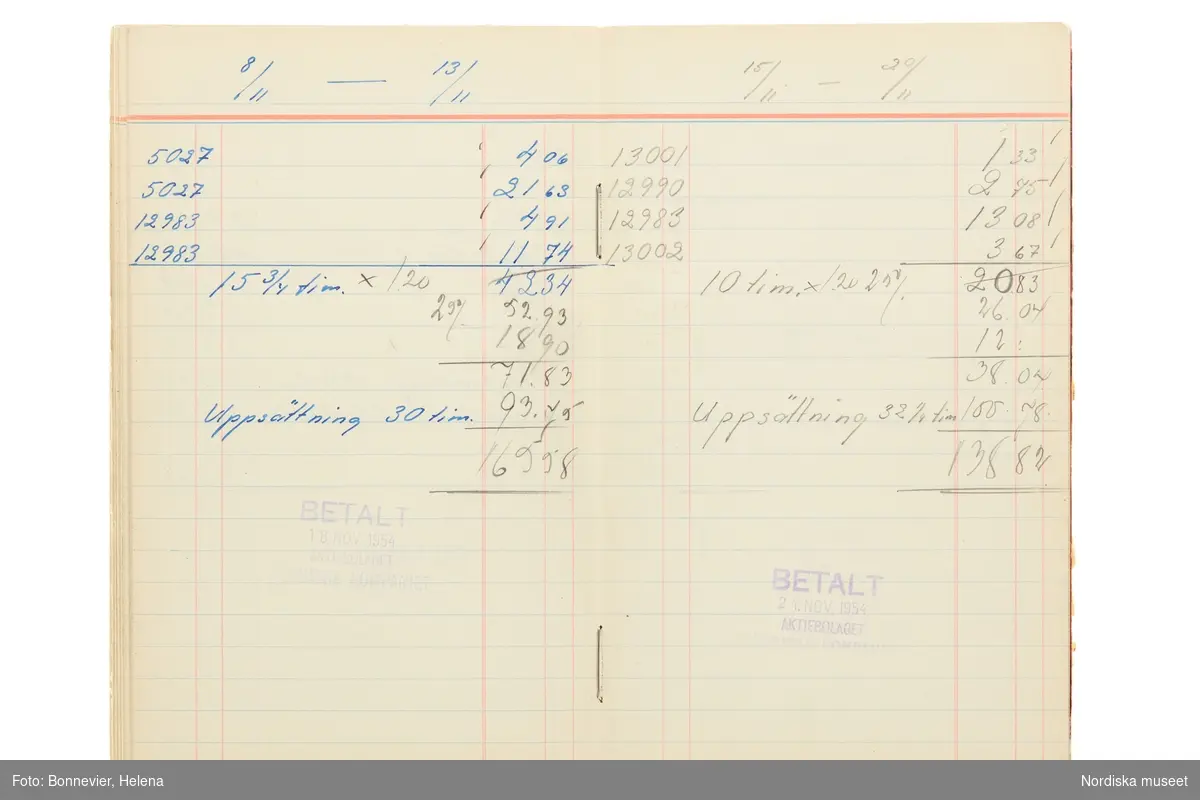 8/11 — 13/11
5027 4 06
5027 21 63
12983 4 91
12983 11 74
15 3/4 tim. x 1.20 42 34
25% 52.93
18 90
71.83
Uppsättning 30 tim. 93.75
165 58
BETALT
18. NOV. 1954
15/11 — 20/11
13001 1 33
12990 2 75
12983 13 08
13002 3 67
10 tim. x 1.20 25% 20 83
26.04
12:
38.04
Uppsättning 32 1/4 tim 100.78
138 82
BETALT
2 NOV. 1954
AKTIEBOLAGET
Foto: Bonnevier, Helena
Nordiska museet